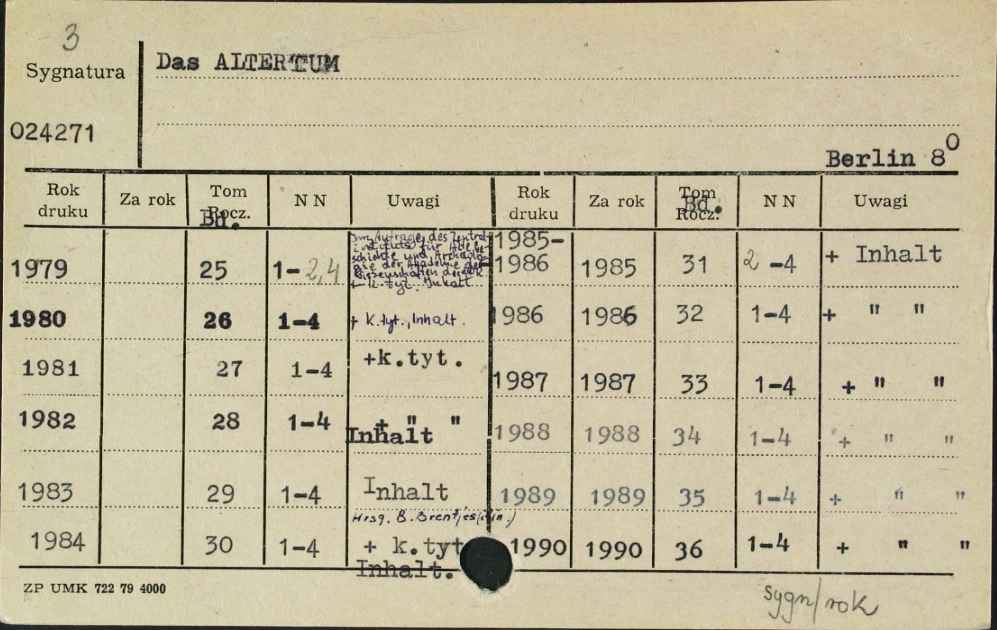 3
Sygnatura
Das ALTERTUM
024271
Berlin 8⁰
Rok druku Za rok Tom Rocz. Bd. NN Uwagi Rok druku Za rok Tom Rocz. Bd. NN Uwagi
Im Auftrage des Zentral-
instituts für Alte Ge-
schichte und Archäolo-
gie der Akademie der
Wissenschaften der DDR
+ k.tyt. Inhalt
1979 25 1-2,4
1980 26 1-4 + k.tyt., Inhalt.
1981 27 1-4 +k.tyt.
1982 28 1-4 + " "
Inhalt
1983 29 1-4 Inhalt
Hrsg. B. Brentjes
1984 30 1-4 + k.tyt
Inhalt.
1985-
1986 1985 31 2-4 + Inhalt
1986 1986 32 1-4 + " "
1987 1987 33 1-4 + " "
1988 1988 34 1-4 + " "
1989 1989 35 1-4 + " "
1990 1990 36 1-4 + " "
ZP UMK 722 79 4000
sygn/rok